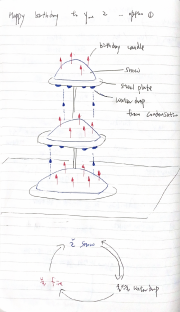 Happy birthday to you 2 ... option ①
birthday candle
snow
steel plate
water drop
from condensation
snow
fire
water drop